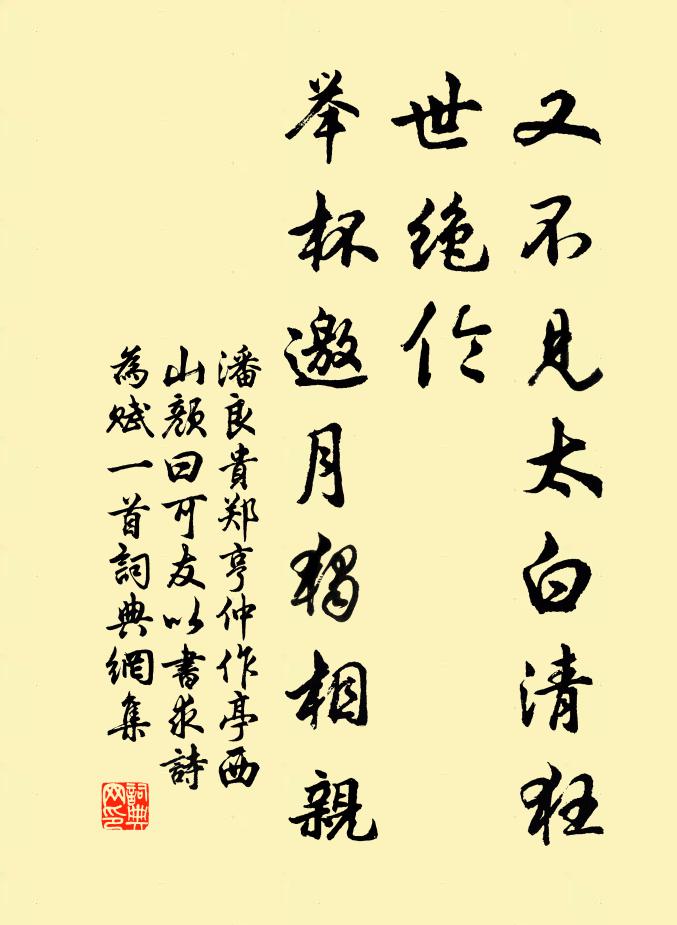 又不見太白清狂
世绝伦
举杯邀月獨相親
潘良貴郑亨仲作亭西
山顏曰可友以書求詩
為赋一首詞典網集
詞典
网印